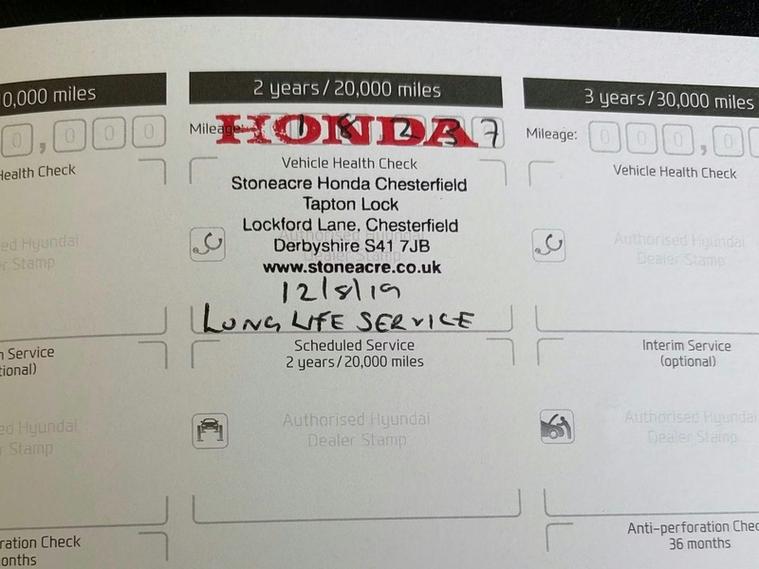 0,000 miles
2 years/20,000 miles
3 years/30,000 miles
0,000
Mileage: 18237
HONDA
Mileage: 000,0
Health Check
Vehicle Health Check
Vehicle Health Check
Stoneacre Honda Chesterfield
Tapton Lock
Lockford Lane, Chesterfield
Derbyshire S41 7JB
www.stoneacre.co.uk
ed Hyundai
r Stamp
Authorised Hyundai
Dealer Stamp
Authorised Hyundai
Dealer Stamp
12/8/19
LONG LIFE SERVICE
n Service
tional)
Scheduled Service
2 years/20,000 miles
Interim Service
(optional)
ed Hyundai
r Stamp
Authorised Hyundai
Dealer Stamp
Authorised Hyundai
Dealer Stamp
ration Check
onths
Anti-perforation Chec
36 months